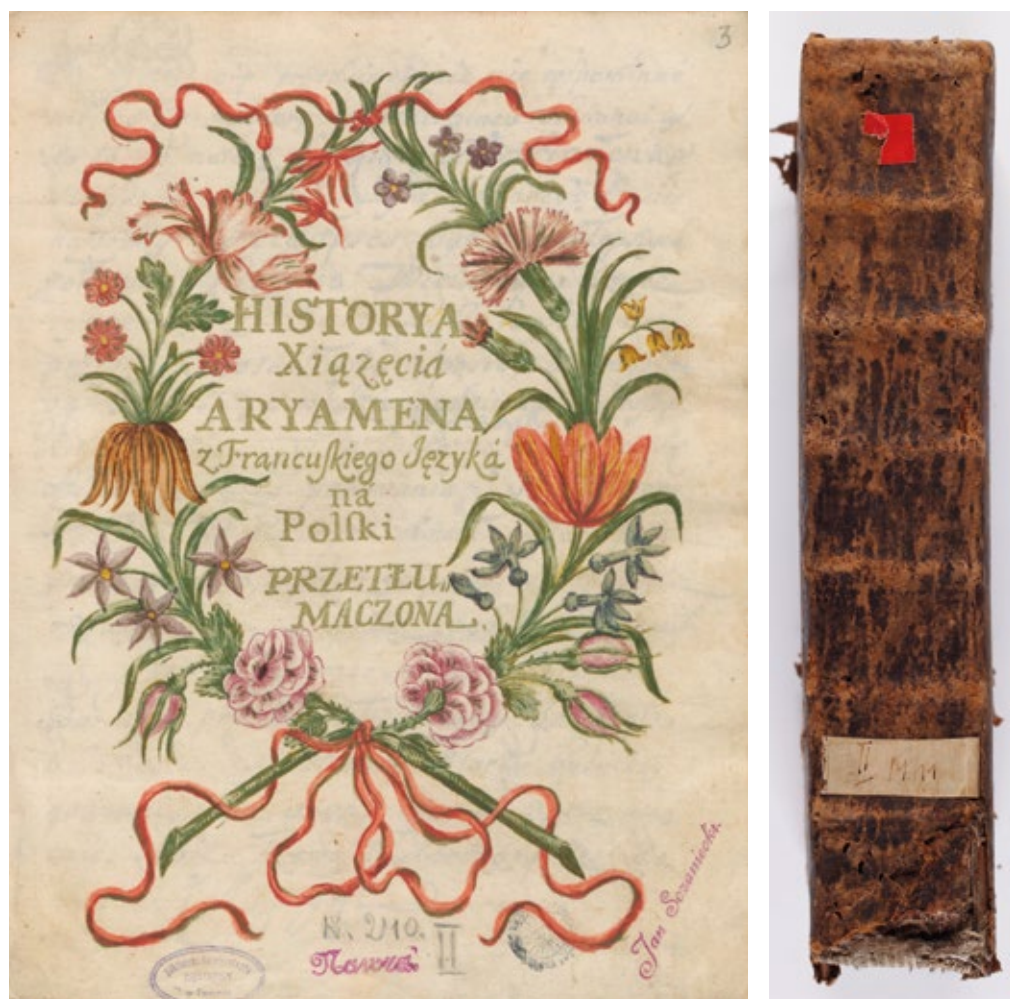 3
HISTORYA
Xiązęciá
ARYAMENA
z Francuſkiego Języká
na
Polſki
PRZETŁU„
MACZONA.
N. 210.
II
Jan
II MM